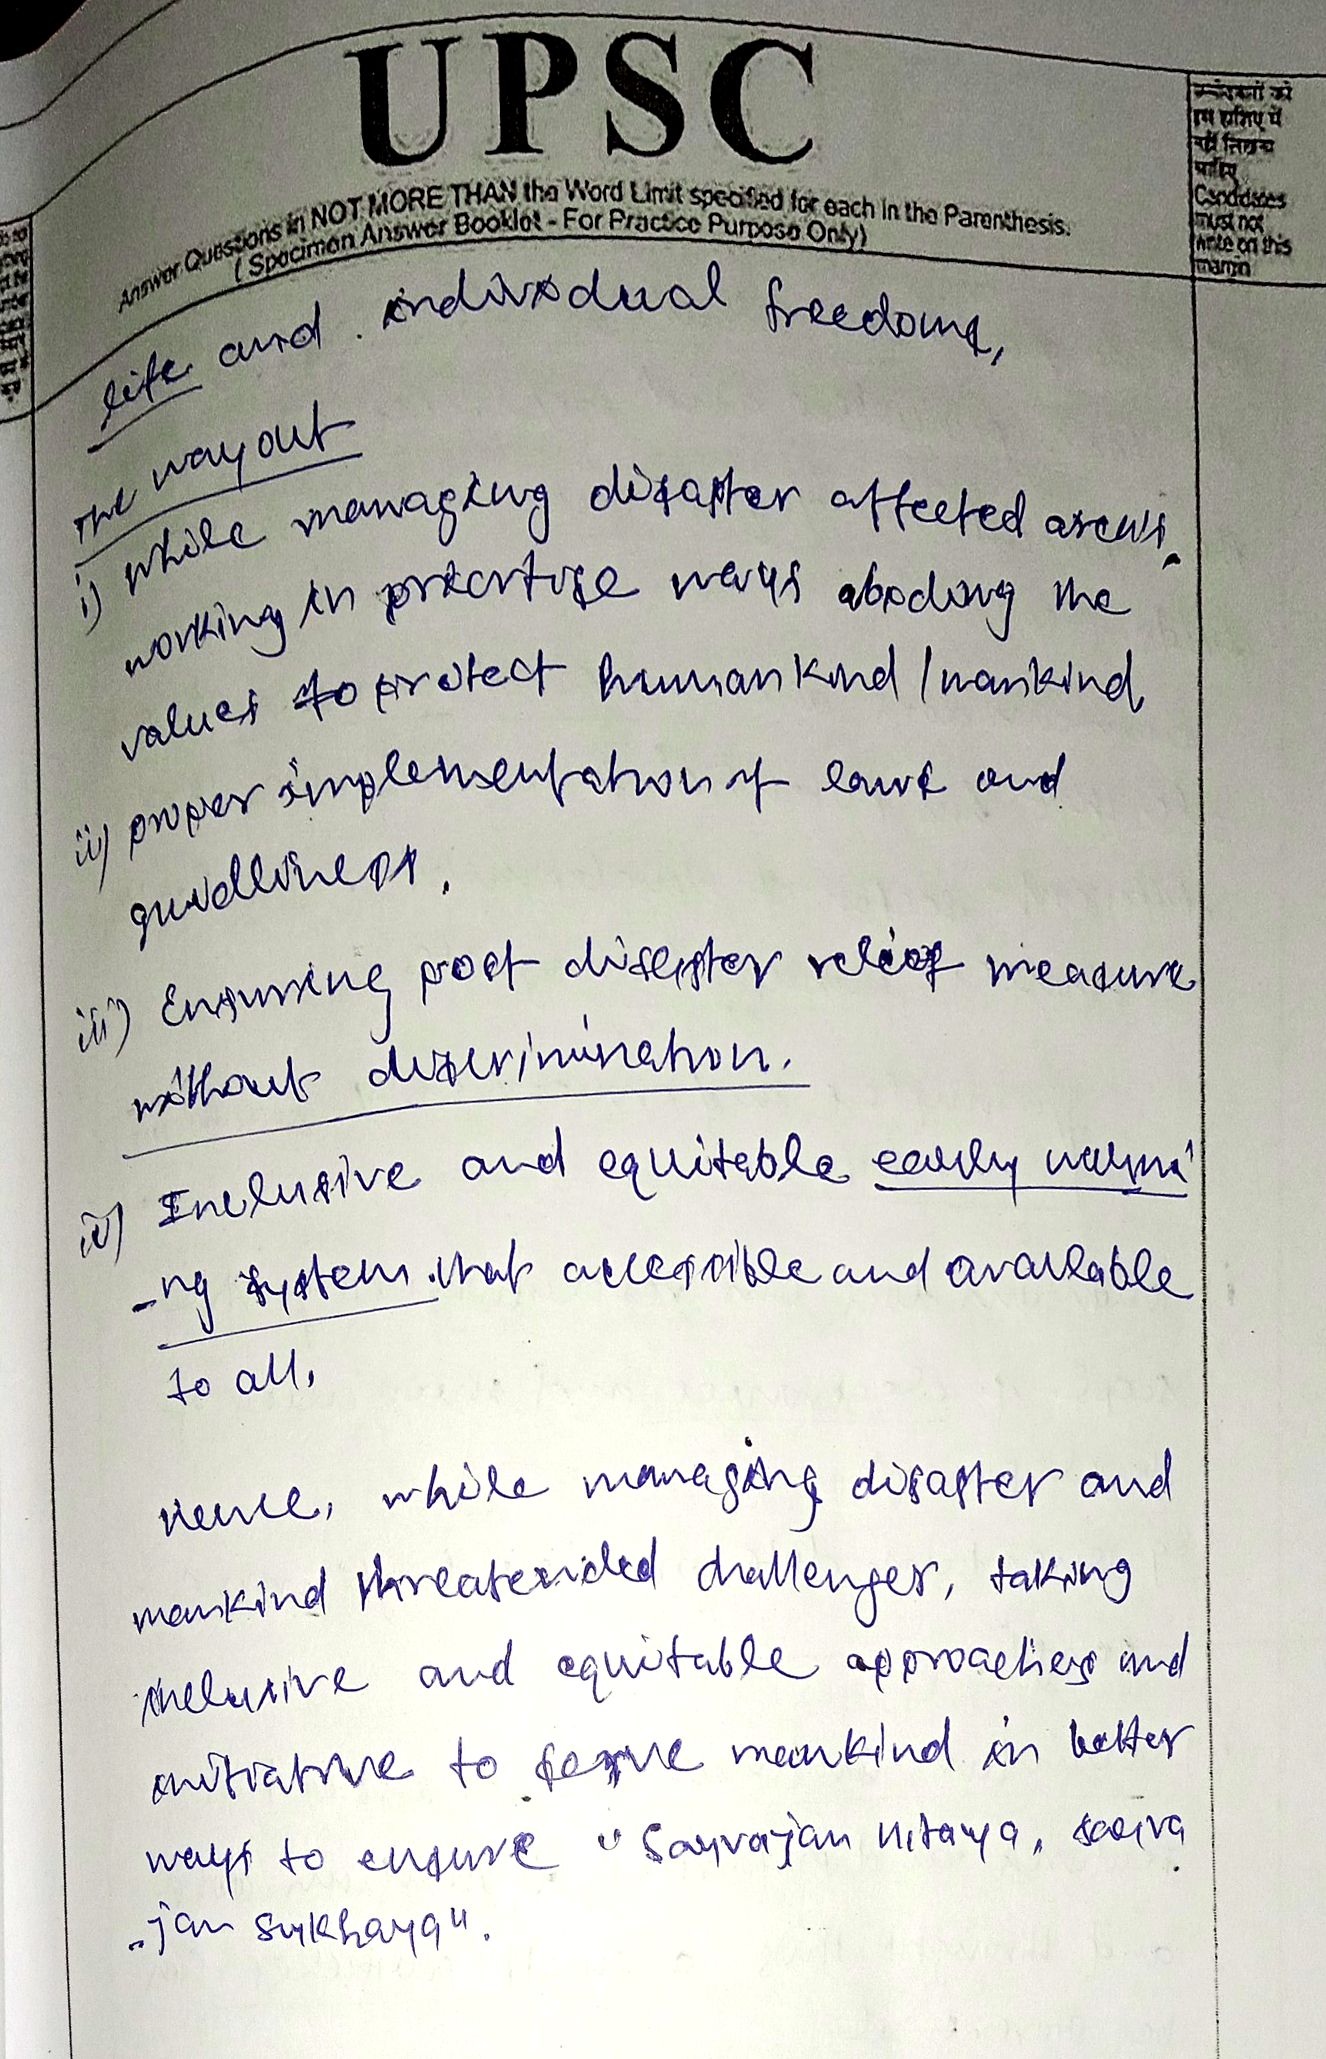 UPSC
Answer Questions in NOT MORE THAN the Word Limit specified for each in the Parenthesis.
( Specimen Answer Booklet - For Practice Purpose Only)
Candidates
must not
write on this
margin
life and individual freedoms,
The way out
i) while managing disaster affected areas,
working in ways abiding the
values to protect humankind / mankind,
ii) proper implementation of laws and
guidlines.
iii) Ensuring post disaster relief measure
without discrimination.
iv) Inclusive and equitable early warni
-ng system that accessible and available
to all.
Hence, while managing disaster and
mankind challenges, taking
inclusive and equitable approaches and
initiative to serve mankind in better
ways to ensure "Sarvajan Hitaya, sarva
-jan Sukhaya".